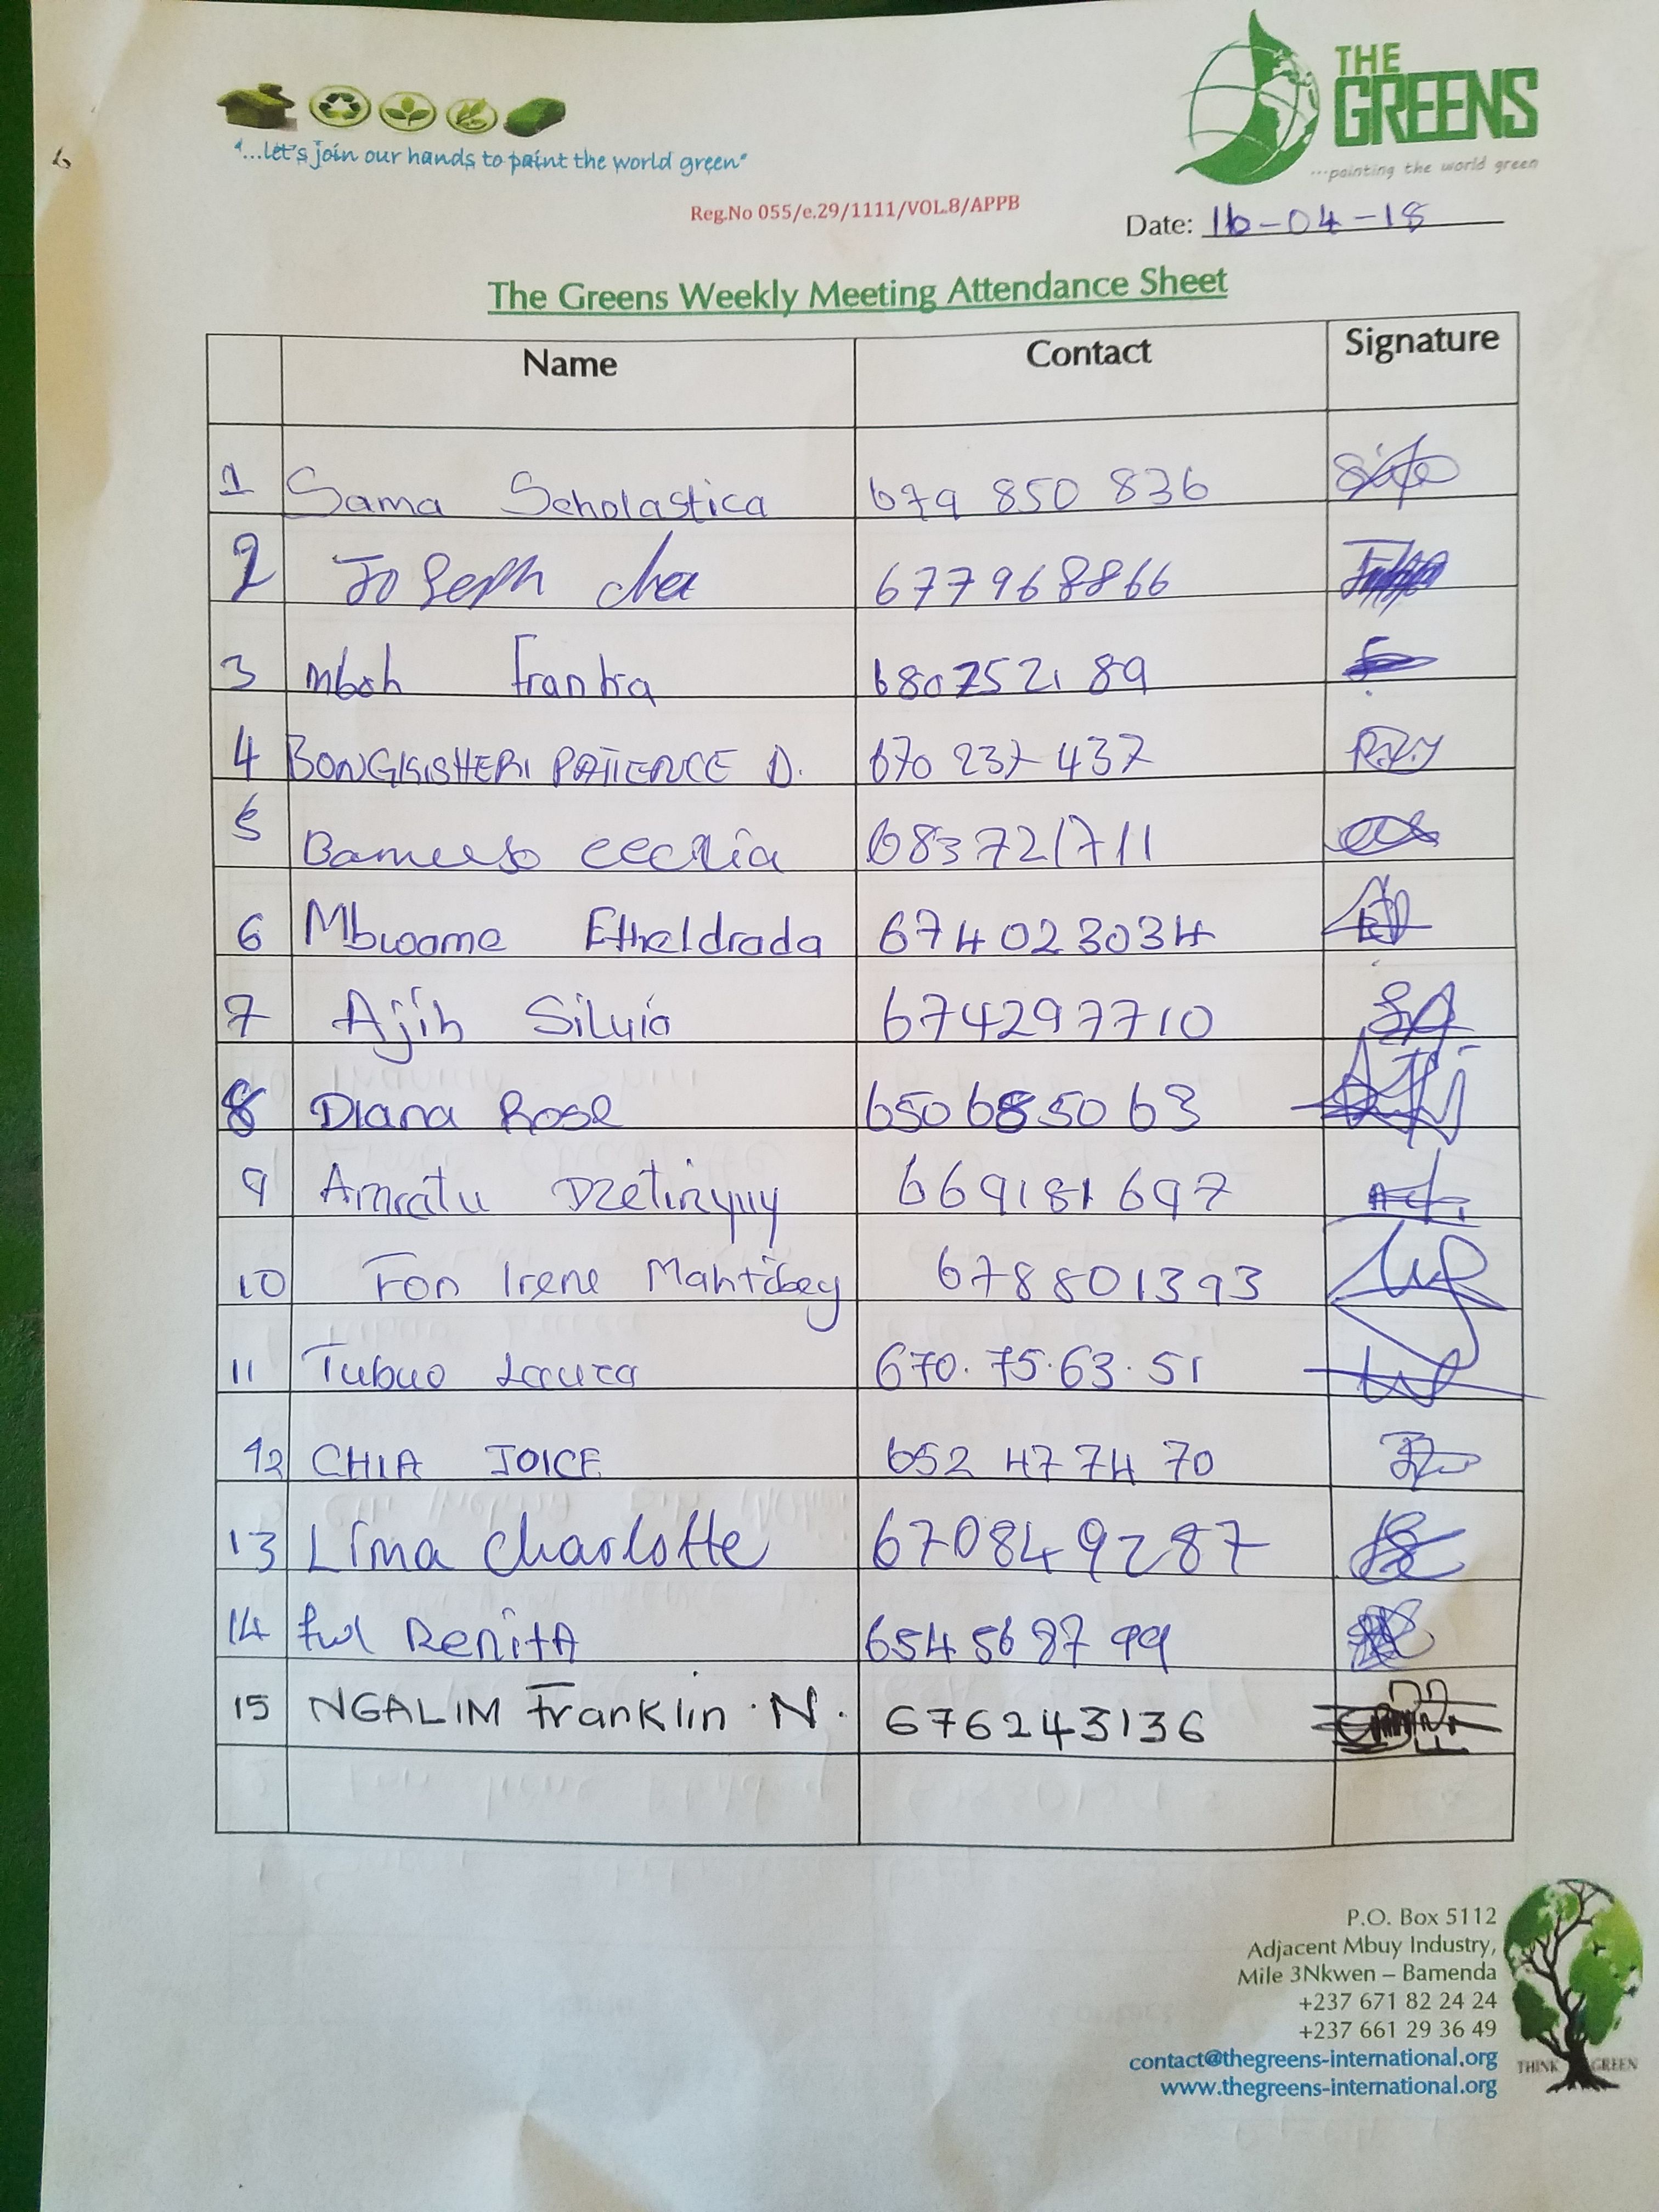 THE
GREENS
...painting the world green
"...let's join our hands to paint the world green"
Reg.No 055/e.29/1111/VOL.8/APPB
Date: 16-04-18
The Greens Weekly Meeting Attendance Sheet
Name Contact Signature
1 Sama Scholastica 679 850 836
2 Joseph 677968866
3 Mboh 680752189
4 PATIENCE D. 670 237 437
5 cecilia 683721711
6 Mbwome Etheldrada 674023034
7 Ajih Silvia 674297710
8 Diana Rose 650685063
9 Amratu Dzetinyuy 669181697
10 Fon Irene 678801393
11 Tubuo Laura 670.75.63.51
12 CHIA JOICE 652 47 74 70
13 Lima Charlotte 670849287
14 RenitA 654 56 87 99
15 NGALIM Franklin .N. 676243136
P.O. Box 5112
Adjacent Mbuy Industry,
Mile 3Nkwen – Bamenda
+237 671 82 24 24
+237 661 29 36 49
contact@thegreens-international.org
www.thegreens-international.org
THINK GREEN